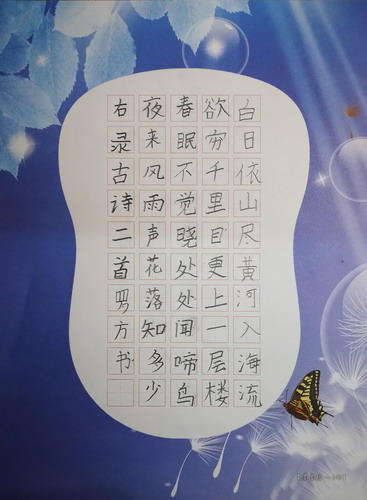 白日依山尽黄河入海流
欲穷千里目更上一层楼
春眠不觉晓处处闻啼鸟
夜来风雨声花落知多少
右录古诗二首罗方书